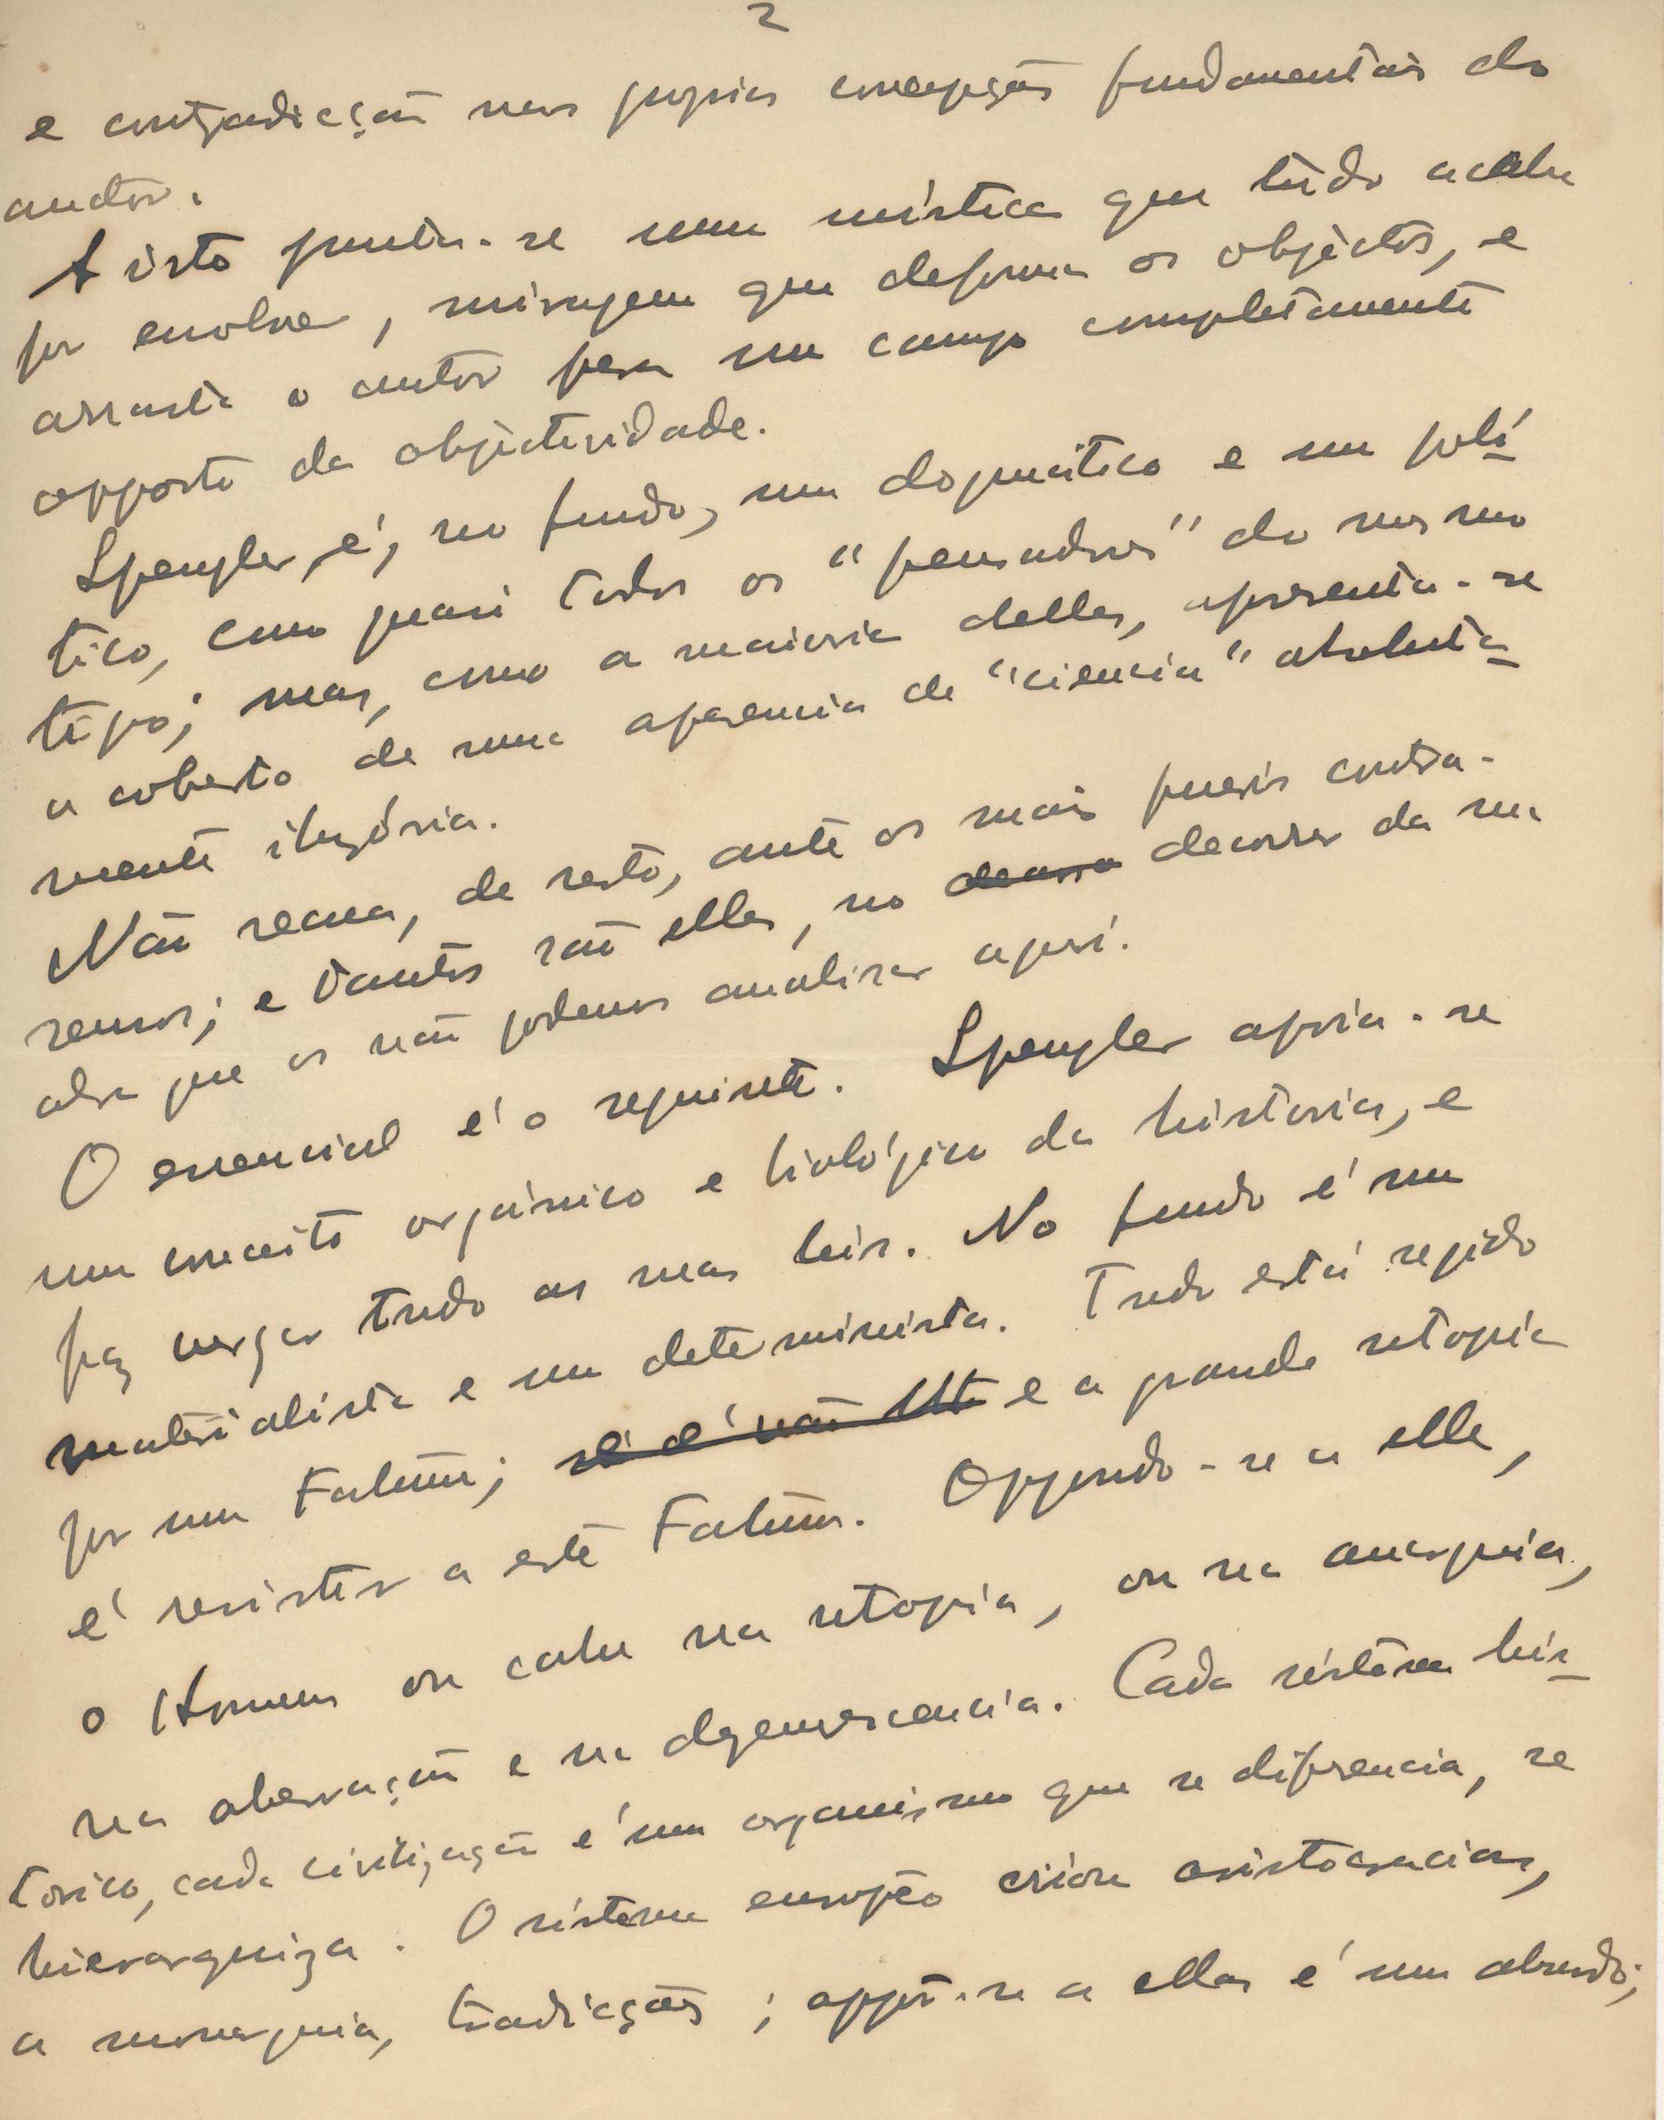 2
e contradicção nas proprias concepções fundamentais do
auctor.
A isto junta-se uma mística que tudo acaba
por envolver, miragem que deforma os objectos, e
arrasta o autor para um campo completamente
opposto da objectividade.
Spengler, é, no fundo, um dogmático e um polí-
tico, como quasi todos os "pensadores" do mesmo
tipo; mas, como a maioria delles, apresenta-se
a coberto de uma aparencia de "ciencia" absoluta-
mente ilusória.
Não recua, de resto, ante os mais pueris contra-
sensos; e tantos são elles, no decorrer da sua
obra que os não podemos analisar aqui.
O essencial é o seguinte. Spengler apoia-se
num conceito orgánico e biológico da historia, e
faz vergar tudo as suas leis. No fundo é um
materialista e um determinista. Tudo está regido
por um Fatum; e a grande utopia
é resistir a este Fatum. Oppondo-se a elle,
o Homem ou cahe na utopia, ou na anarquia,
na aberração e na degenerescencia. Cada sistema his-
torico, cada civilização é um organismo que se diferencia, se
hierarquiza. O sistema europeo criou aristocracias,
a monarquia, tradicções; oppôr-se a ellas é um absurdo;